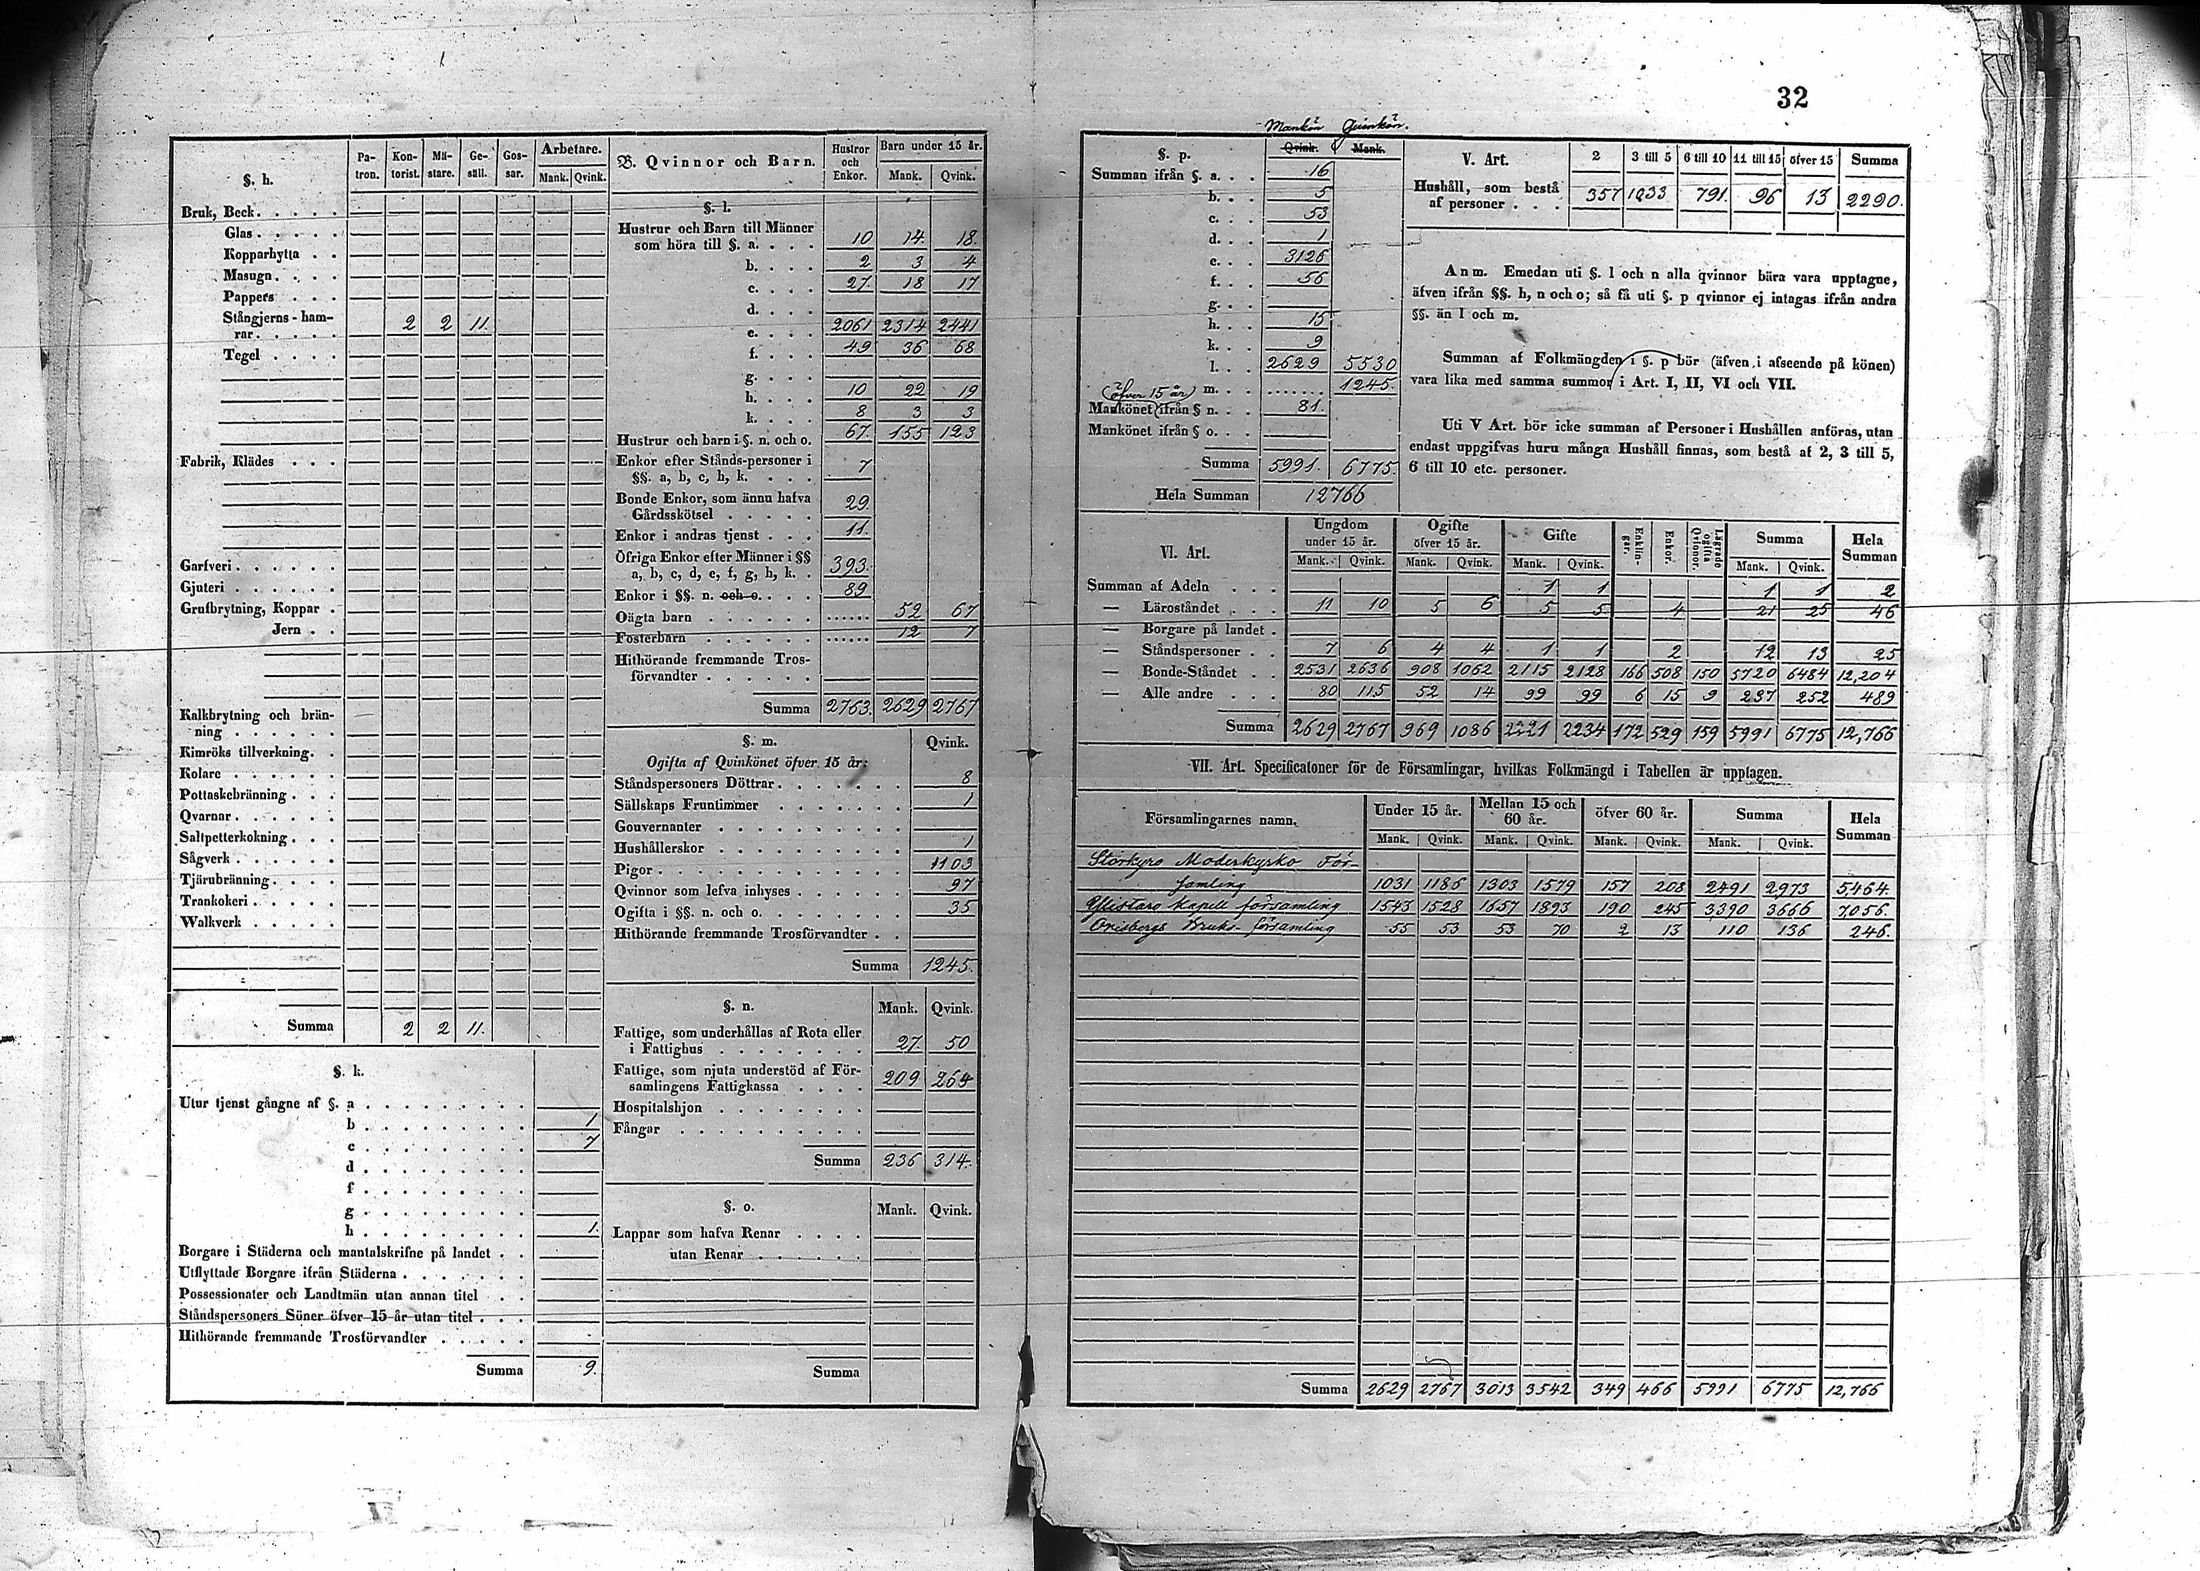 32
§. h. Pa-tron. Kon-torist. Mä-stare. Ge-säll. Gos-sar. Arbetare. Mank. Qvink.
Bruk, Beck. . . . .
Glas . . . . .
Kopparhytta . .
Masugn. . . .
Pappers . . .
Stångjerns-ham-
rar. . . . . 2 2 11.
Tegel . . . .
Fabrik, Klädes . . .
Garfveri . . . . . .
Gjuteri . . . . . .
Grufbrytning, Koppar .
Jern . .
Kalkbrytning och brän-
ning . . . . . .
Kimröks tillverkning. .
Kolare . . . . . .
Pottaskebränning . . .
Qvarnar . . . . . .
Saltpetterkokning . . .
Sågverk . . . . . .
Tjärubränning. . . .
Trankokeri . . . . .
Walkverk . . . . .
Summa 2 2 11.
§. k.
Utur tjenst gångne af §. a . . . . . . . . .
b . . . . . . . . . 1
c . . . . . . . . . 7
d . . . . . . . . .
f . . . . . . . . .
g . . . . . . . . .
h . . . . . . . . . 1.
Borgare i Städerna och mantalskrifne på landet . .
Utflyttade Borgare ifrån Städerna . . . . . . .
Possessionater och Landtmän utan annan titel . .
Ståndspersoners Söner öfver 15 år utan titel . . .
Hithörande fremmande Trosförvandter . . . . .
Summa 9.
B. Qvinnor och Barn. Hustror och Enkor. Barn under 15 år. Mank. Qvink.
§. l.
Hustrur och Barn till Männer
som höra till §. a. . . . 10 14. 18.
b. . . . 2 3 4
c. . . . 27. 18 17
d. . . .
e. . . . 2061 2314 2441
f. . . . 49 36 68
g. . . .
h. . . . 10 22 19
k. . . . 8 3 3
Hustrur och barn i §. n. och o. 67. 155 123
Enkor efter Stånds-personer i
§§. a, b, c, h, k. . . . 7
Bonde Enkor, som ännu hafva
Gårdsskötsel . . . . . 29
Enkor i andras tjenst . . . 11.
Öfriga Enkor efter Männer i §§
a, b, c, d, e, f, g, h, k. . 393.
Enkor i §§. n. och o. . . . 89
Oägta barn . . . . . . ...... 52 67
Fosterbarn . . . . . . ...... 12 7
Hithörande fremmande Tros-
förvandter . . . . . .
Summa 2763. 2629 2767
§. m. Qvink.
Ogifta af Qvinkönet öfver 15 år:
Ståndspersoners Döttrar. . . . . . . 8
Sällskaps Fruntimmer . . . . . . . 1
Gouvernanter . . . . . . . . . .
Hushållerskor . . . . . . . . . . 1
Pigor . . . . . . . . . . . . . 1103
Qvinnor som lefva inhyses . . . . . 97
Ogifta i §§. n. och o. . . . . . . . 35
Hithörande fremmande Trosförvandter . .
Summa 1245.
§. n. Mank. Qvink.
Fattige, som underhållas af Rota eller
i Fattighus . . . . . . . . 27. 50
Fattige, som njuta understöd af För-
samlingens Fattigkassa . . . . 209 264
Hospitalshjon . . . . . . . .
Fångar . . . . . . . . . .
Summa 236 314.
§. o. Mank. Qvink.
Lappar som hafva Renar . . . .
utan Renar . . . . . .
Summa
Mankön Qvinkön.
§. p. Qvink. Mank.
Summan ifrån §. a. . . 16
b. . . 5
c. . . 53
d. . . 1
e. . . 3126
f. . . 56
g. . .
h. . . 15
k. . . 9
l. . . 2629 5530
m. . . ...... 1245.
(öfver 15 år)
Mankönet ifrån § n. . . 81.
Mankönet ifrån § o. . .
Summa 5991. 6775.
Hela Summan 12766
V. Art. 2 3 till 5 6 till 10 11 till 15 öfver 15 Summa
Hushåll, som bestå
af personer . . . 357 1033 791. 96 13 2290.
Anm. Emedan uti §. l och n alla qvinnor bära vara upptagne,
äfven ifrån §§. h, n och o; så få uti §. p qvinnor ej intagas ifrån andra
§§. än l och m.
Summan af Folkmängden i §. p bör (äfven i afseende på könen)
vara lika med samma summor i Art. I, II, VI och VII.
Uti V Art. bör icke summan af Personer i Hushållen anföras, utan
endast uppgifvas huru många Hushåll finnas, som bestå af 2, 3 till 5,
6 till 10 etc. personer.
VI. Art. Ungdom under 15 år. Ogifte öfver 15 år. Gifte Enklin-gar. Enkor. Lägrade ogifta Qvinnor. Summa Hela Summan
Mank. Qvink. Mank. Qvink. Mank. Qvink. Mank. Qvink.
Summan af Adeln . . . 1 1 1 1 2
— Läroståndet . . . 11 10 5 6 5 5 4 21 25 46
— Borgare på landet .
— Ståndspersoner . . 7 6 4 4 1 1 2 12 13 25
— Bonde-Ståndet . . 2531 2636 908 1062 2115 2128 166 508 150 5720 6484 12,204
— Alle andre . . . 80 115 52 14 99 99 6 15 9 237 252 489
Summa 2629 2767 969 1086 2221 2234 172 529 159 5991 6775 12,766
VII. Art. Specificatoner för de Församlingar, hvilkas Folkmängd i Tabellen är upptagen.
Församlingarnes namn. Under 15 år. Mellan 15 och 60 år. öfver 60 år. Summa Hela Summan
Mank. Qvink. Mank. Qvink. Mank. Qvink. Mank. Qvink.
Storkyro Moderkyrko För-
samling 1031 1186 1303 1579 157 208 2491 2973 5464.
Ylistaro Kapell församling 1543 1528 1657 1893 190 245 3390 3666 7,056.
Orisbergs Bruks-församling 55 53 53 70 2 13 110 136 246.
Summa 2629 2767 3013 3542 349 466 5991 6775 12,766